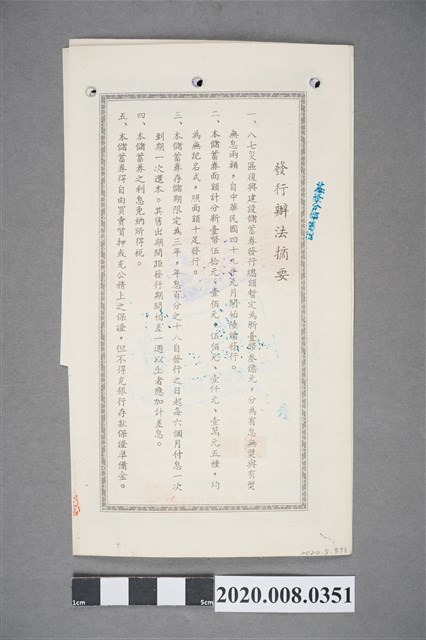 發行辦法摘要
一、八七災區復興建設儲蓄券發行總額暫定為新臺幣叁億元，分為有息無獎與有獎
無息兩類，自中華民國四十九年元月開始陸續發行。
二、本儲蓄券面額計分新臺幣伍拾元、壹佰元、伍佰元、壹仟元、壹萬元五種，均
為無記名式，照面額十足發行。
三、本儲蓄券存儲期限定為三年，年息百分之十八自發行之日起每六個月付息一次
到期一次還本。其售出期間距發行期間相差一週以上者應加計差息。
四、本儲蓄券之利息免納所得稅。
五、本儲蓄券得自由買賣質押或充公務上之保證，但不得充銀行存款保證準備金。
2020.8.351
1cm
5cm
2020.008.0351